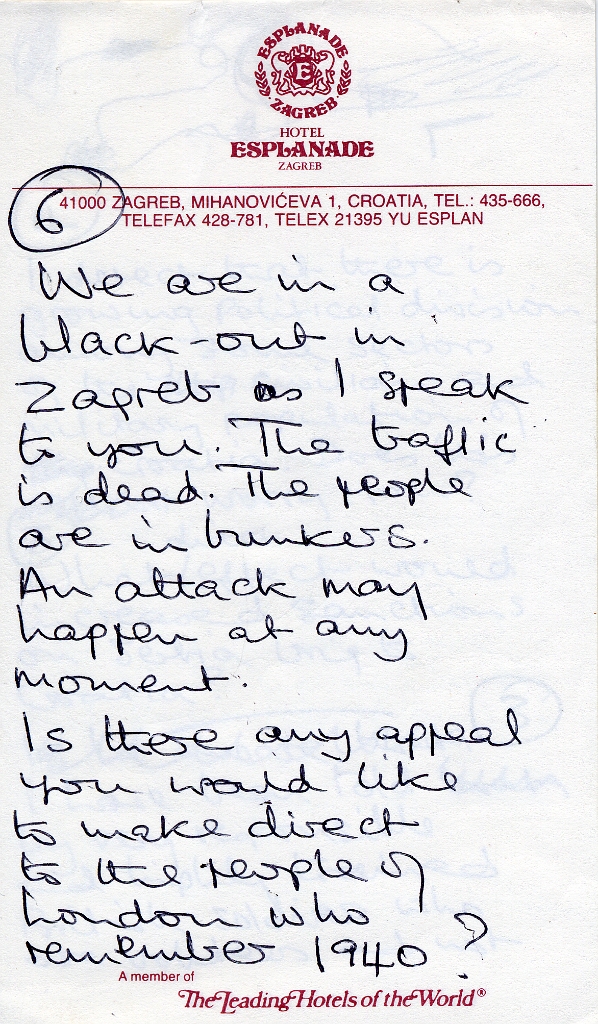 ESPLANADE
E
ZAGREB
HOTEL
ESPLANADE
ZAGREB
41000 ZAGREB, MIHANOVIĆEVA 1, CROATIA, TEL.: 435-666,
TELEFAX 428-781, TELEX 21395 YU ESPLAN
6
We are in a
black-out in
Zagreb as I speak
to you. The traffic
is dead. The people
are in bunkers.
An attack may
happen at any
moment.
Is there any appeal
you would like
to make direct
to the people of
London who
remember 1940?
A member of
The Leading Hotels of the World®